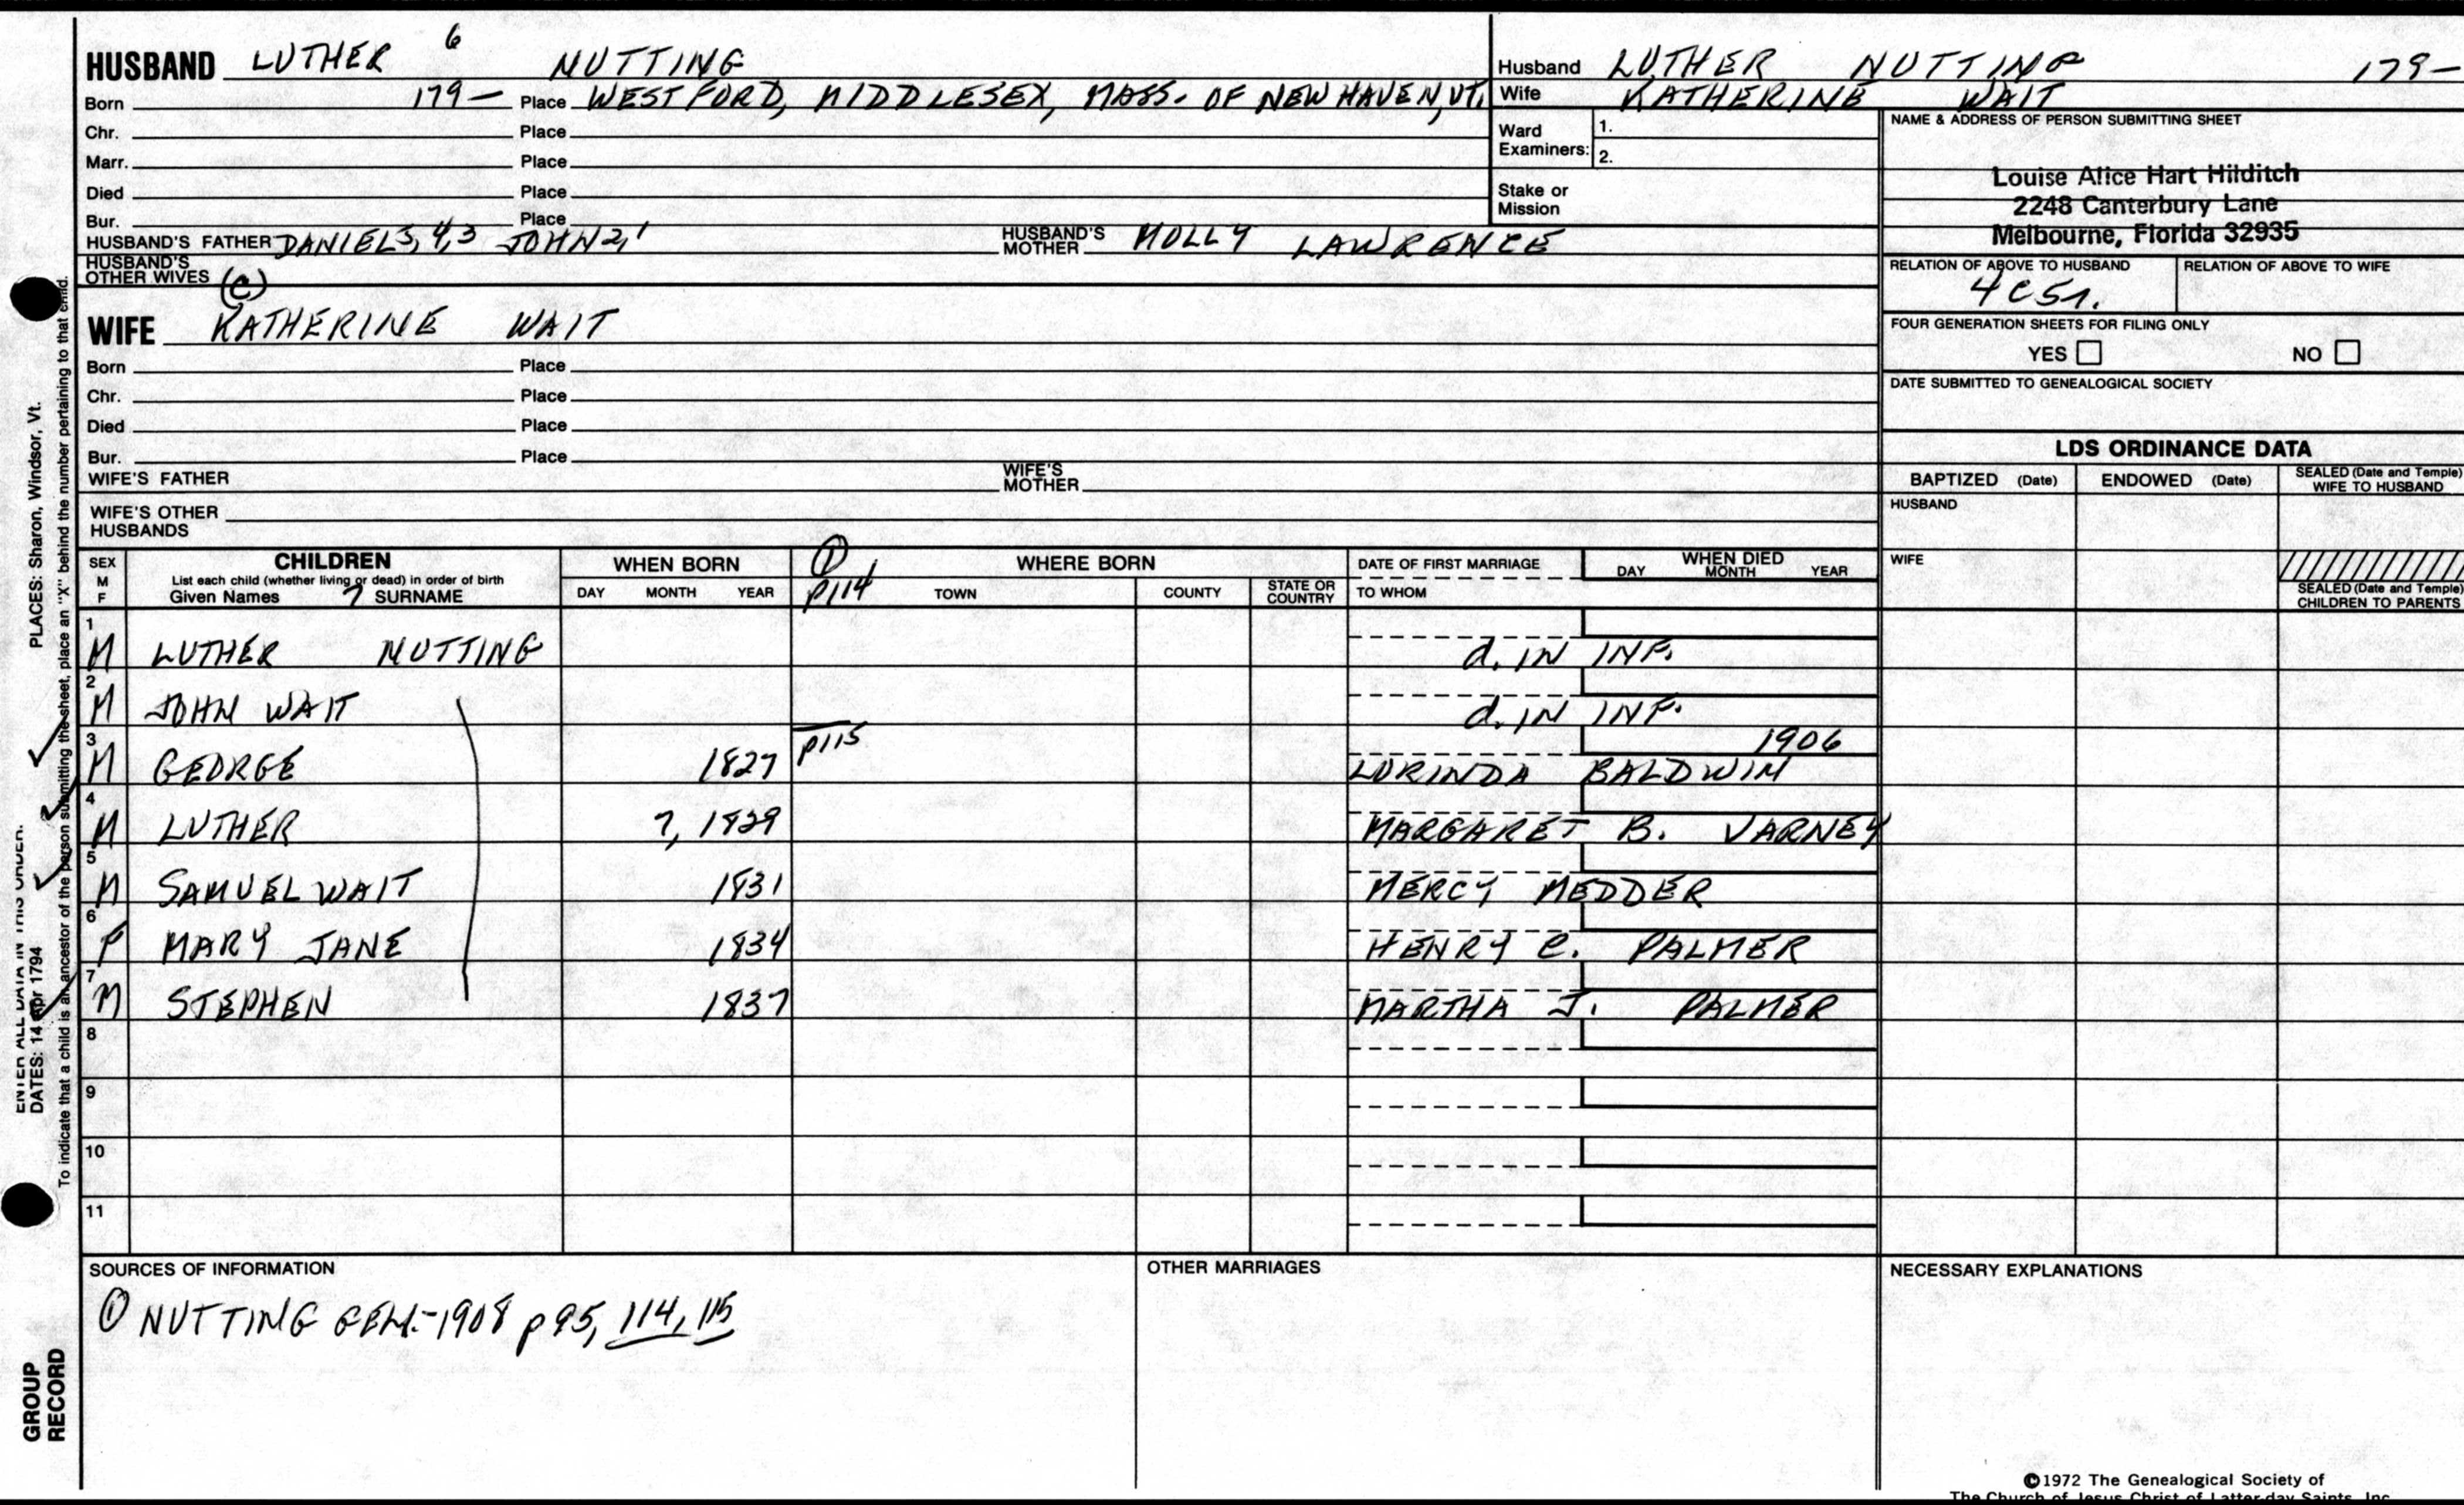 HUSBAND LUTHER 6 NUTTING
Born 179— Place WESTFORD, MIDDLESEX, MASS. OF NEW HAVEN, VT.
Chr. Place
Marr. Place
Died Place
Bur. Place
HUSBAND'S FATHER DANIEL 5, 4, 3 JOHN 2, 1 HUSBAND'S MOTHER MOLLY LAWRENCE
HUSBAND'S OTHER WIVES
(C)
WIFE KATHERINE WAIT
Born Place
Chr. Place
Died Place
Bur. Place
WIFE'S FATHER WIFE'S MOTHER
WIFE'S OTHER HUSBANDS
Husband LUTHER NUTTING 179—
Wife KATHERINE WAIT
Ward Examiners: 1.
2.
Stake or Mission
NAME & ADDRESS OF PERSON SUBMITTING SHEET
Louise Alice Hart Hilditch
2248 Canterbury Lane
Melbourne, Florida 32935
RELATION OF ABOVE TO HUSBAND RELATION OF ABOVE TO WIFE
4C5r.
FOUR GENERATION SHEETS FOR FILING ONLY
YES NO
DATE SUBMITTED TO GENEALOGICAL SOCIETY
LDS ORDINANCE DATA
BAPTIZED (Date) ENDOWED (Date) SEALED (Date and Temple) WIFE TO HUSBAND
HUSBAND
WIFE
SEALED (Date and Temple) CHILDREN TO PARENTS
SEX M F CHILDREN WHEN BORN ① WHERE BORN DATE OF FIRST MARRIAGE WHEN DIED
List each child (whether living or dead) in order of birth
Given Names 7 SURNAME DAY MONTH YEAR p114 TOWN COUNTY STATE OR COUNTRY TO WHOM DAY MONTH YEAR
1 M LUTHER NUTTING d. IN INF.
2 M JOHN WAIT d. IN INF.
3 M GEORGE 1827 p115 1906 LORINDA BALDWIN
4 M LUTHER ?, 1829 MARGARET B. VARNEY
5 M SAMUEL WAIT 1831 MERCY MEDDER
6 F MARY JANE 1834 HENRY C. PALMER
7 M STEPHEN 1837 MARTHA J. PALMER
8
9
10
11
SOURCES OF INFORMATION OTHER MARRIAGES NECESSARY EXPLANATIONS
① NUTTING GEN.-1908 p95, 114, 115
©1972 The Genealogical Society of
The Church of Jesus Christ of Latter-day Saints, Inc.
ENTER ALL DATA IN THIS ORDER:
DATES: 14 Apr 1794 PLACES: Sharon, Windsor, Vt.
To indicate that a child is an ancestor of the person submitting the sheet, place an "X" behind the number pertaining to that child.
GROUP RECORD